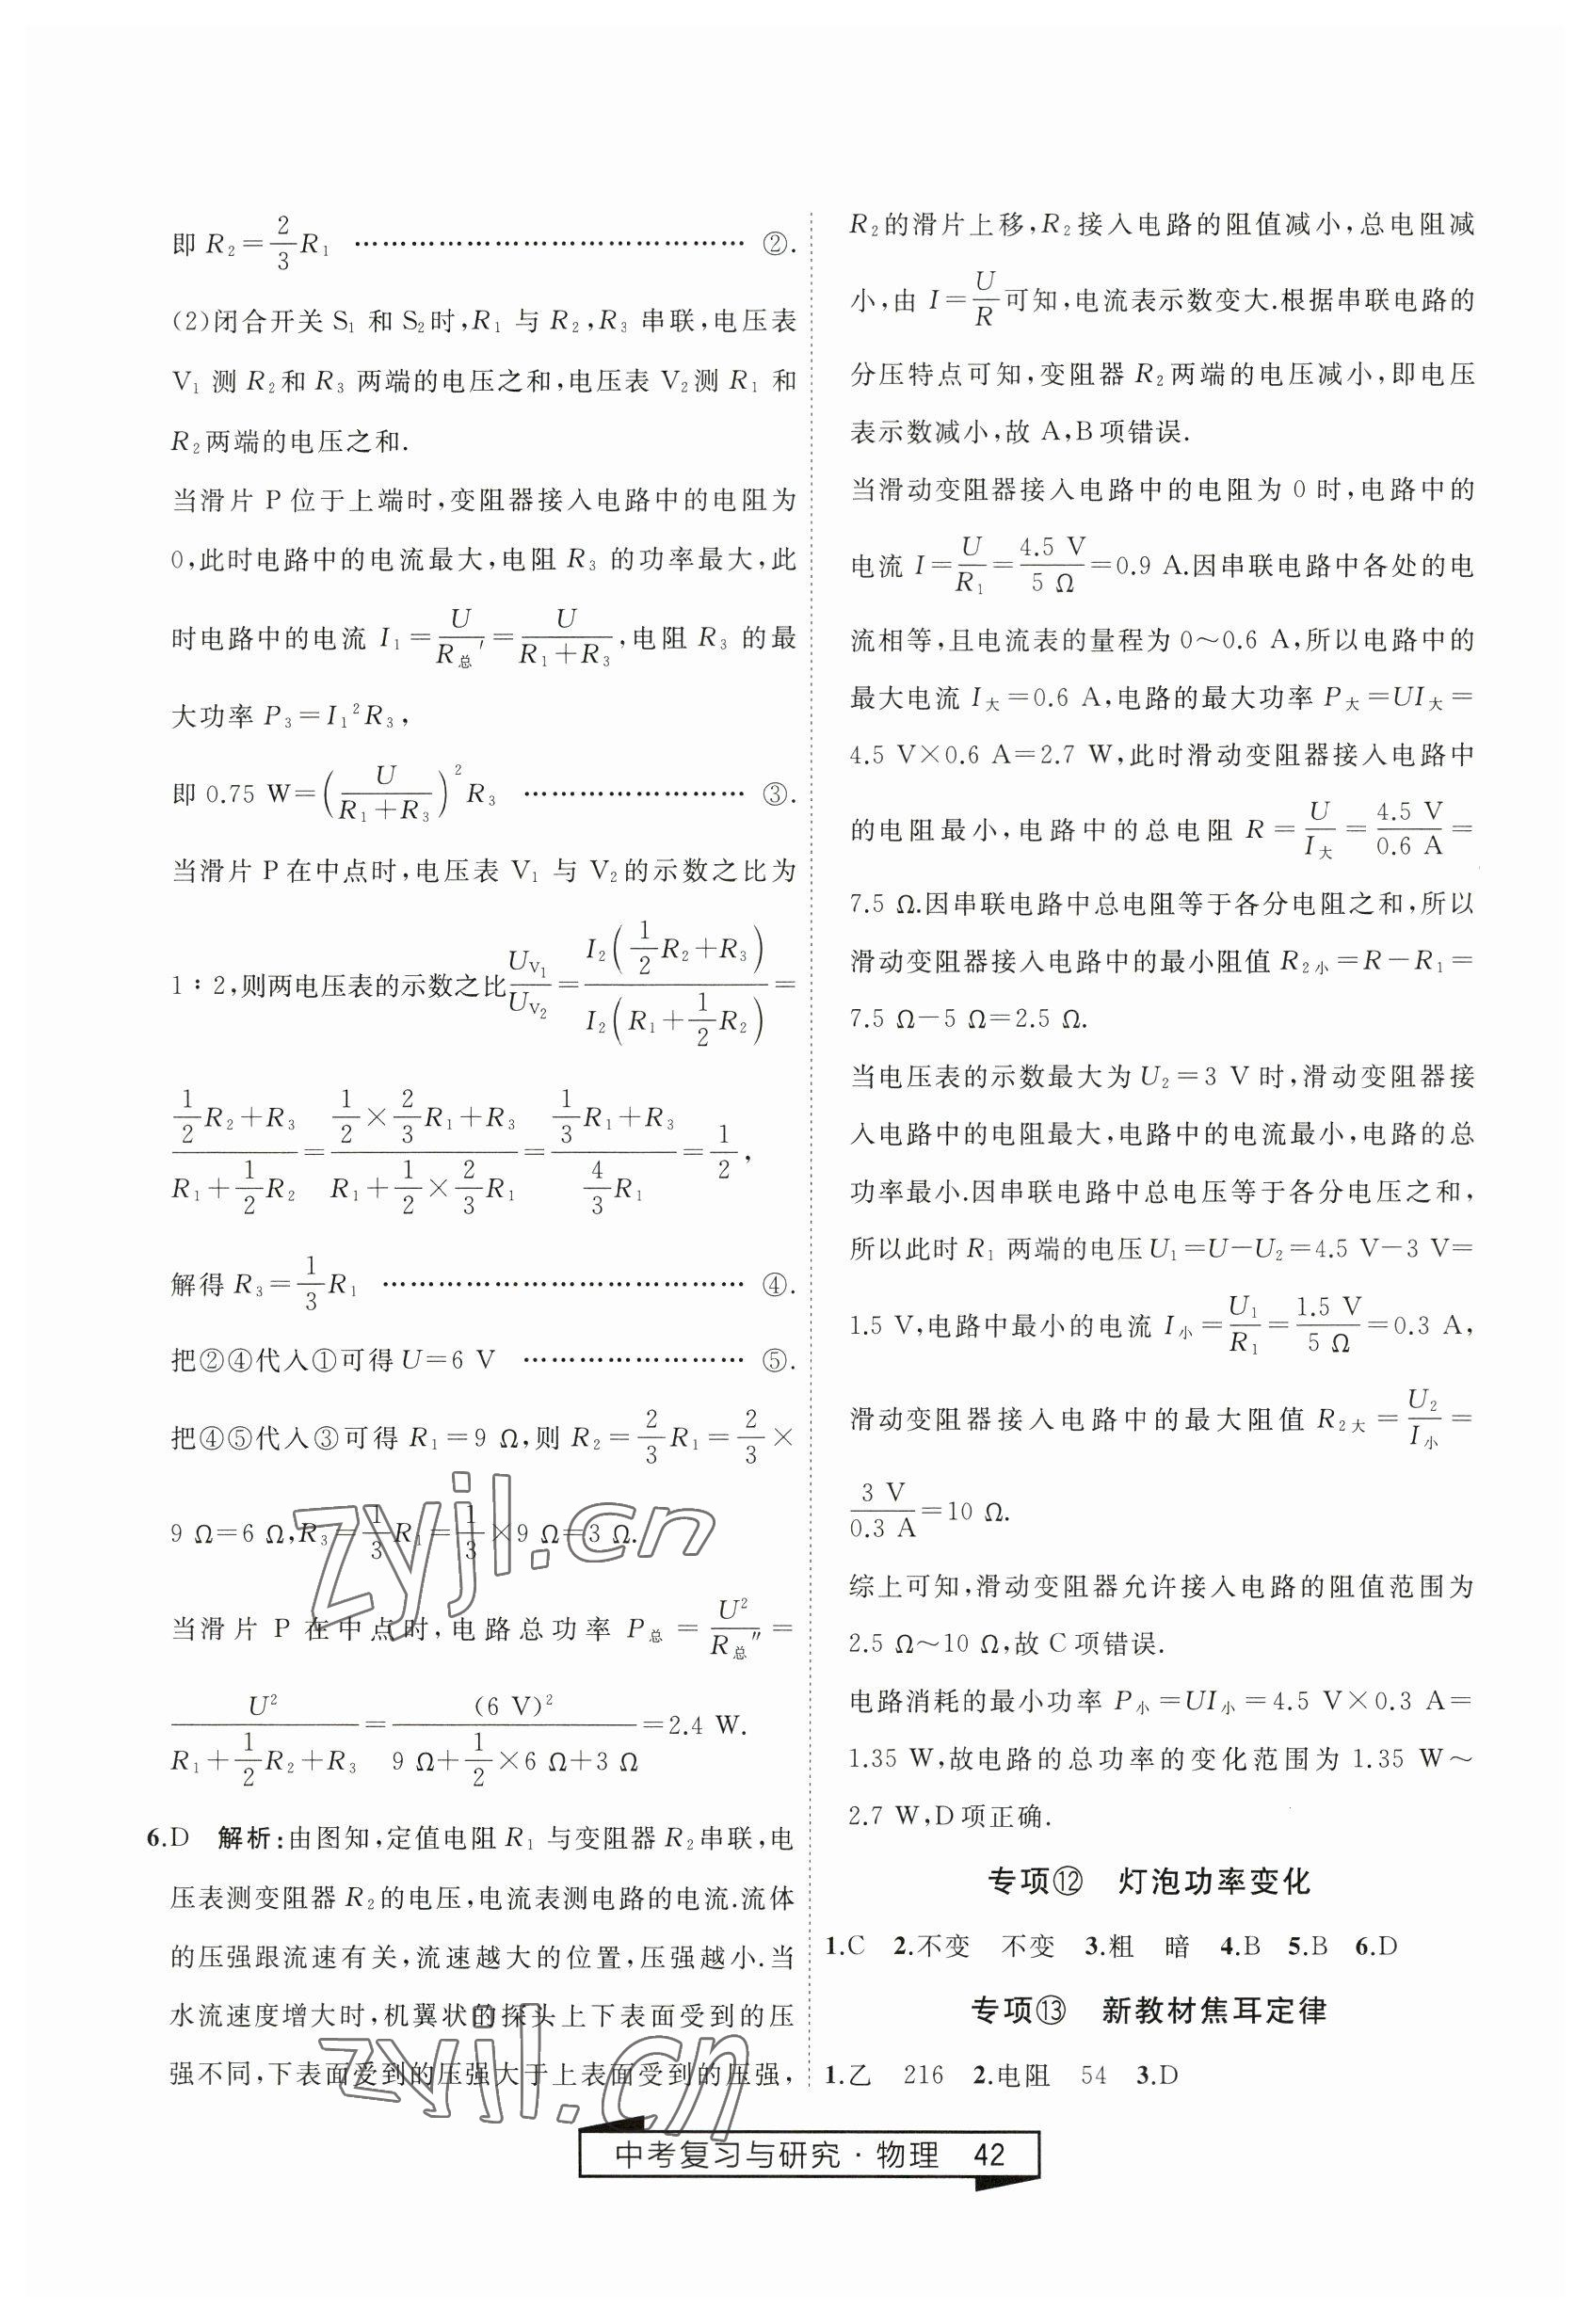 即 R₂=2/3 R₁ ………………………………… ②.
(2)闭合开关 S₁ 和 S₂时,R₁ 与 R₂,R₃ 串联,电压表
V₁ 测 R₂和 R₃ 两端的电压之和,电压表 V₂测 R₁ 和
R₂两端的电压之和.
当滑片 P 位于上端时,变阻器接入电路中的电阻为
0,此时电路中的电流最大,电阻 R₃ 的功率最大,此
时电路中的电流 I₁=U/R总′=U/(R₁+R₃),电阻 R₃ 的最
大功率 P₃=I₁²R₃,
即 0.75 W=(U/(R₁+R₃))²R₃ …………………… ③.
当滑片 P 在中点时,电压表 V₁ 与 V₂的示数之比为
1∶2,则两电压表的示数之比 U_V₁/U_V₂=I₂(1/2 R₂+R₃)/I₂(R₁+1/2 R₂)=
(1/2 R₂+R₃)/(R₁+1/2 R₂)=(1/2×2/3 R₁+R₃)/(R₁+1/2×2/3 R₁)=(1/3 R₁+R₃)/(4/3 R₁)=1/2,
解得 R₃=1/3 R₁ ………………………………… ④.
把②④代入①可得 U=6 V …………………… ⑤.
把④⑤代入③可得 R₁=9 Ω,则 R₂=2/3 R₁=2/3×
9 Ω=6 Ω,R₃=1/3 R₁=1/3×9 Ω=3 Ω.
当滑片 P 在中点时,电路总功率 P总=U²/R总″=
U²/(R₁+1/2 R₂+R₃)=(6 V)²/(9 Ω+1/2×6 Ω+3 Ω)=2.4 W.
6.D 解析:由图知,定值电阻 R₁ 与变阻器 R₂串联,电
压表测变阻器 R₂的电压,电流表测电路的电流.流体
的压强跟流速有关,流速越大的位置,压强越小.当
水流速度增大时,机翼状的探头上下表面受到的压
强不同,下表面受到的压强大于上表面受到的压强,
R₂的滑片上移,R₂接入电路的阻值减小,总电阻减
小,由 I=U/R可知,电流表示数变大.根据串联电路的
分压特点可知,变阻器 R₂两端的电压减小,即电压
表示数减小,故 A,B项错误.
当滑动变阻器接入电路中的电阻为 0 时,电路中的
电流 I=U/R₁=4.5 V/5 Ω=0.9 A.因串联电路中各处的电
流相等,且电流表的量程为 0～0.6 A,所以电路中的
最大电流 I大=0.6 A,电路的最大功率 P大=UI大=
4.5 V×0.6 A=2.7 W,此时滑动变阻器接入电路中
的电阻最小,电路中的总电阻 R=U/I大=4.5 V/0.6 A=
7.5 Ω.因串联电路中总电阻等于各分电阻之和,所以
滑动变阻器接入电路中的最小阻值 R₂小=R-R₁=
7.5 Ω-5 Ω=2.5 Ω.
当电压表的示数最大为 U₂=3 V 时,滑动变阻器接
入电路中的电阻最大,电路中的电流最小,电路的总
功率最小.因串联电路中总电压等于各分电压之和,
所以此时 R₁ 两端的电压 U₁=U-U₂=4.5 V-3 V=
1.5 V,电路中最小的电流 I小=U₁/R₁=1.5 V/5 Ω=0.3 A,
滑动变阻器接入电路中的最大阻值 R₂大=U₂/I小=
3 V/0.3 A=10 Ω.
综上可知,滑动变阻器允许接入电路的阻值范围为
2.5 Ω～10 Ω,故 C 项错误.
电路消耗的最小功率 P小=UI小=4.5 V×0.3 A=
1.35 W,故电路的总功率的变化范围为 1.35 W～
2.7 W,D 项正确.
专项⑫ 灯泡功率变化
1.C 2.不变 不变 3.粗 暗 4.B 5.B 6.D
专项⑬ 新教材焦耳定律
1.乙 216 2.电阻 54 3.D
中考复习与研究·物理 42
zyjl.cn
zyjl.cn